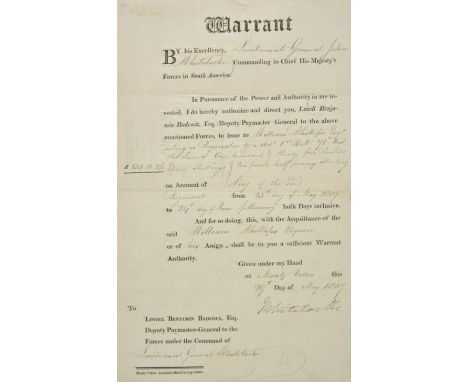 Warrant
BY his Excellency, Lieutenant General John
Whitelocke Commanding in Chief His Majesty's
Forces in South America.
In Pursuance of the Power and Authority in me in-
vested, I do hereby authorize and direct you, Lovell Benja-
min Badcock, Esq. Deputy Paymaster General to the above
mentioned Forces, to issue to William Phillipps Esqr
acting as Paymaster to a det 1st Batt. 71st
the Sum of One hundred & thirty five Pounds
Shillings & two pence half penny Sterling
on Account of Pay of the said
Regiment from 25th day of May 1807
to 24th day of June following both Days inclusive.
And for so doing, this, with the Acquittance of the
said William Phillipps Esquire
or of his Assigns, shall be to you a sufficient Warrant
Authority.
Given under my Hand
at Monte Video this
29th Day of May 1807
J Whitelocke
To
LOVELL BENJAMIN BADCOCK, Esq.
Deputy Paymaster-General to the
Forces under the Command of
Lieutenant General Whitelocke